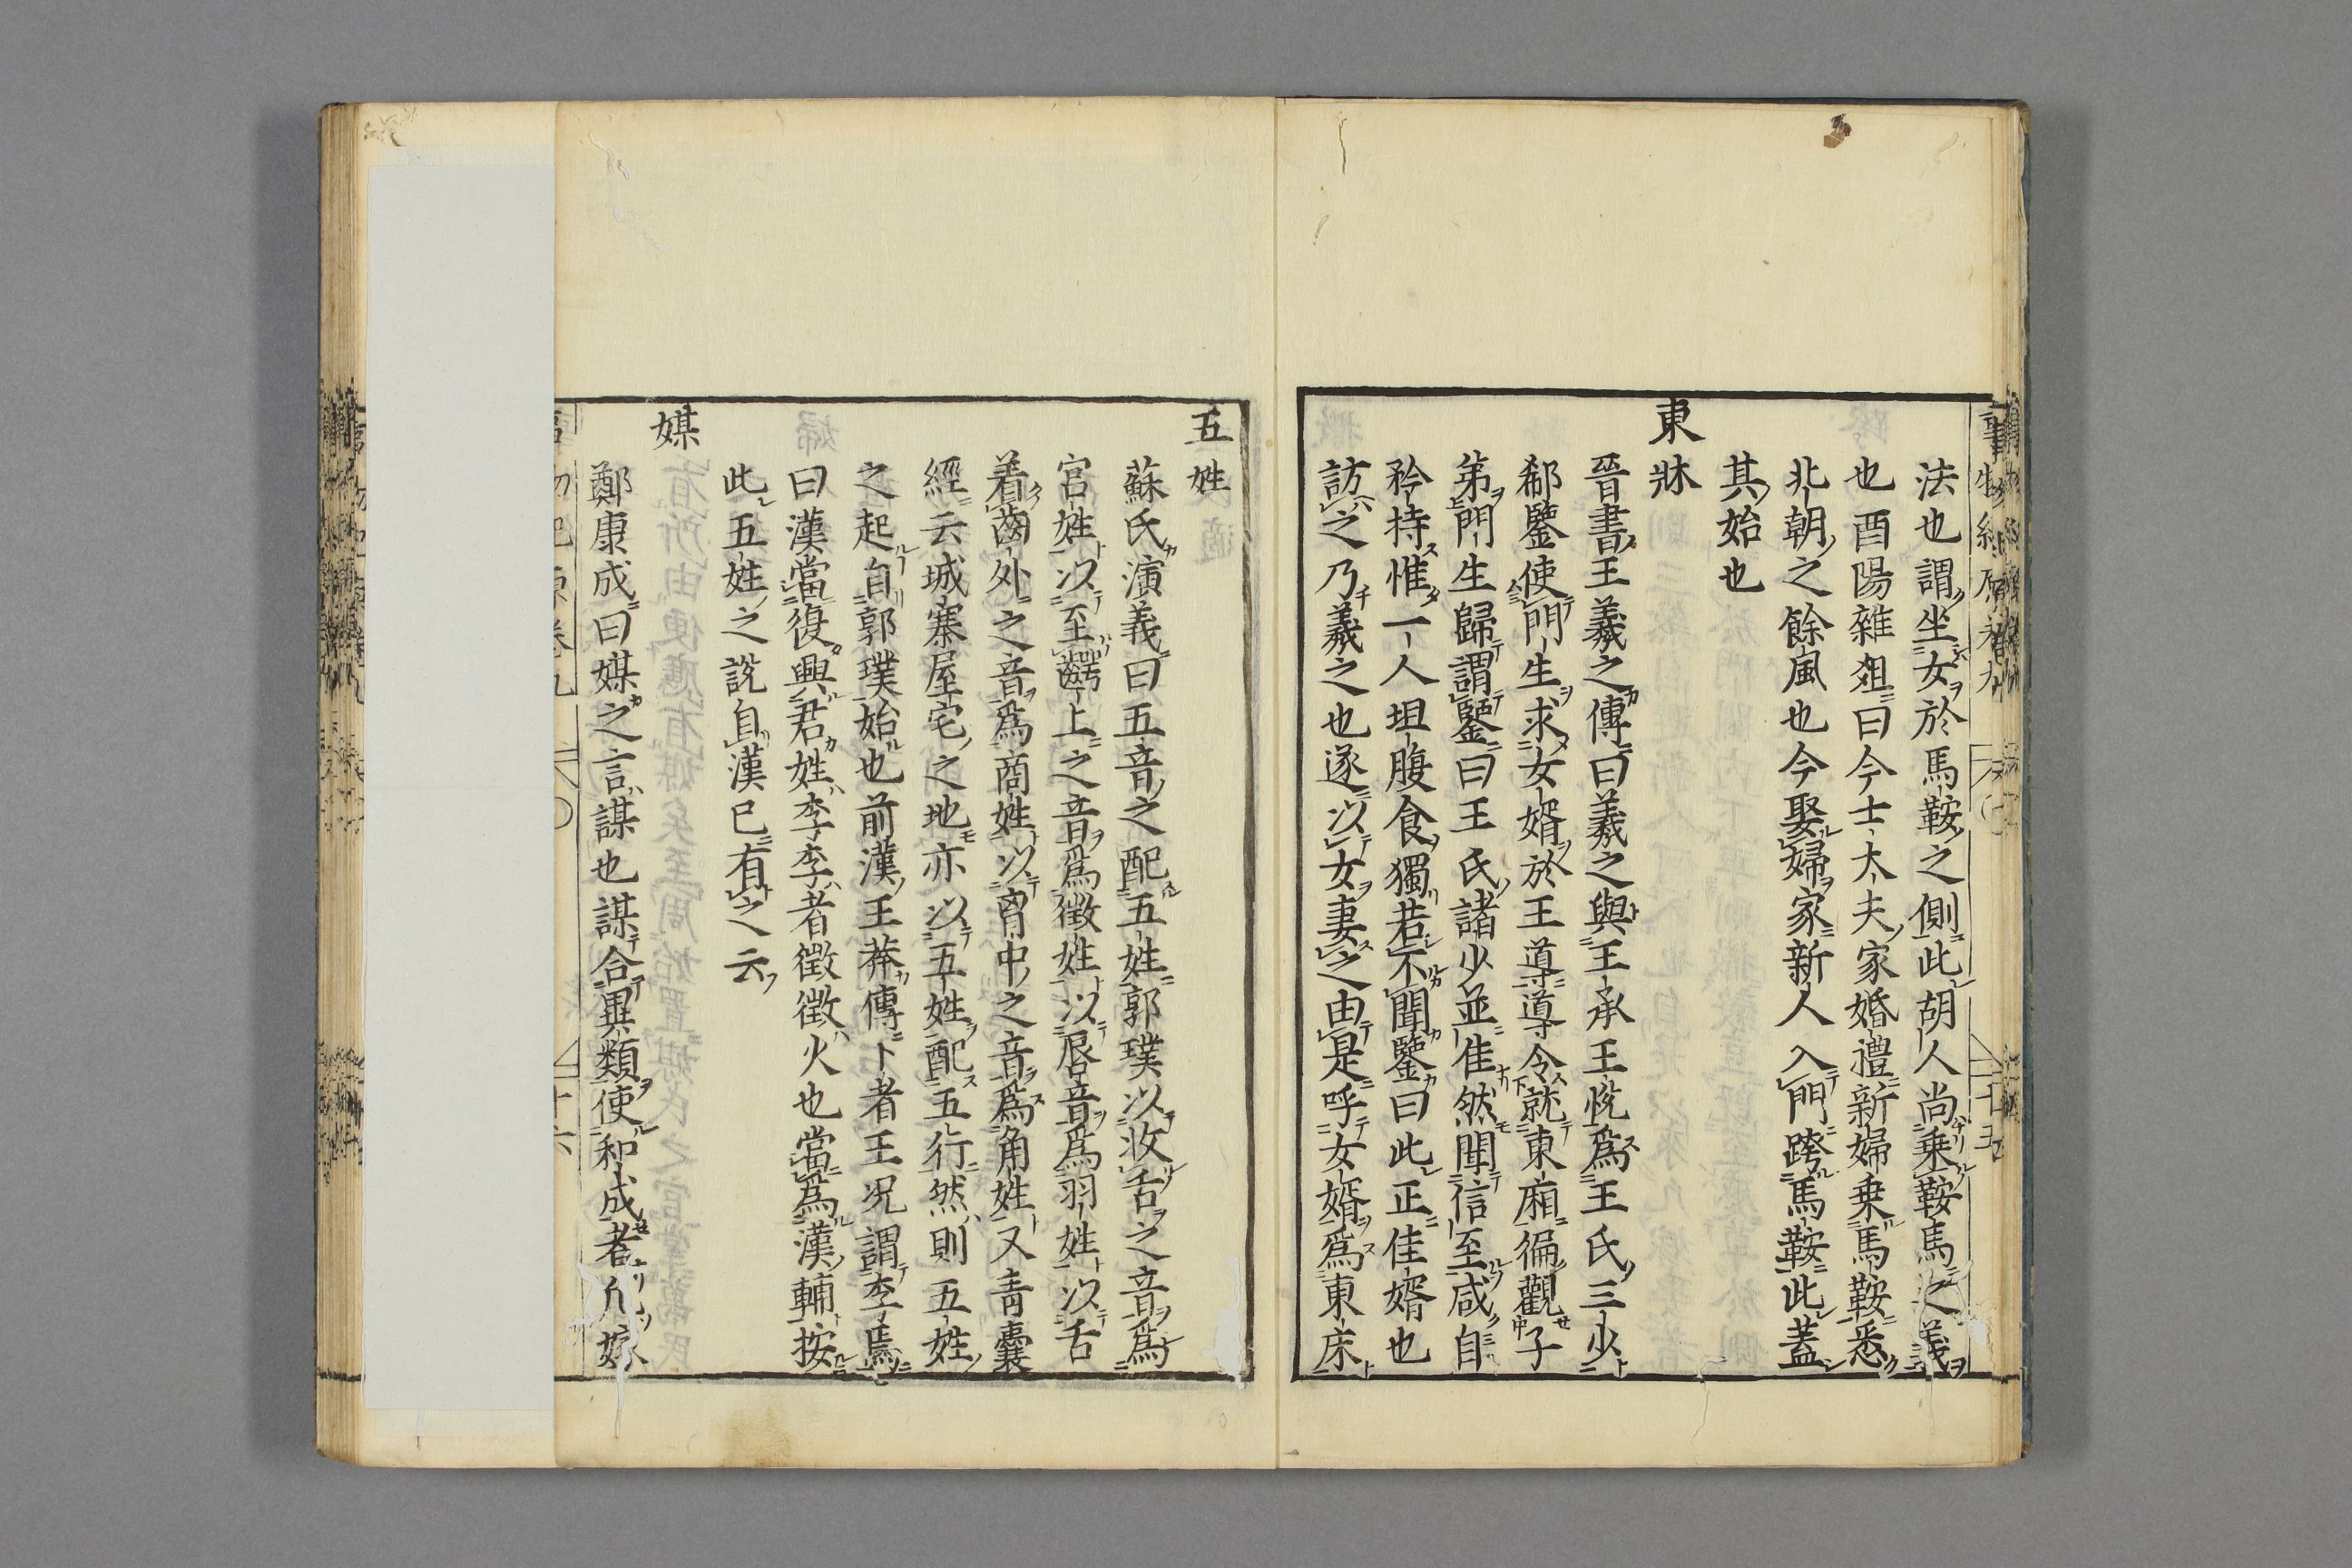 法也謂坐女於馬鞍之側此胡人尚乗鞍馬之義
也酉陽雜爼曰今士太夫家婚禮新婦乗馬鞍悉
北朝之餘風也今娶婦家新人入門跨馬鞍此蓋
其始也
東牀
晉書王羲之傳曰羲之與王承王恱爲王氏三少
郗鑒使門生求女婿於王導導令就東廂徧觀子
第門生歸謂鑒曰王氏諸少並佳然聞信至咸自
矜持惟一人坦腹食獨若不聞鑒曰此正佳婿也
訪之乃羲之也遂以女妻之由是呼女婿爲東床
五姓
蘇氏演義曰五音之配五姓郭璞以收舌之音爲
宮姓以至齶上之音爲徵姓以唇音爲羽姓以舌
着齒外之音爲商姓以胷中之音爲角姓又青囊
經云城寨屋宅之地亦以五姓配五行然則五姓
之起自郭璞始也前漢王莽傳卜者王况謂李焉
曰漢當復興君姓李李者徵徵火也當爲漢輔按
此五姓之說自漢已有之云
媒
鄭康成曰媒之言謀也謀合異類使和成者凢嫁